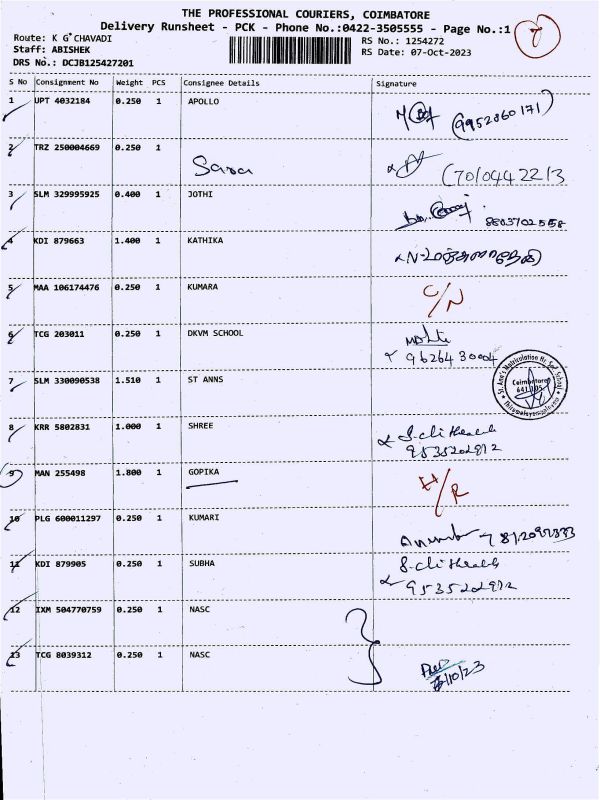 THE PROFESSIONAL COURIERS, COIMBATORE
Delivery Runsheet - PCK - Phone No.:0422-3505555 - Page No.:1
Route: K G CHAVADI
RS No.: 1254272
Staff: ABISHEK
RS Date: 07-Oct-2023
DRS No.: DCJB125427201
S No Consignment No Weight PCS Consignee Details Signature
1 UPT 4032184 0.250 1 APOLLO
(9952860171)
2 TRZ 250004669 0.250 1
Sara
(7010442213
3 SLM 329995925 0.400 1 JOTHI
4 KDI 879663 1.400 1 KATHIKA
5 MAA 106174476 0.250 1 KUMARA
C/N
6 TCG 203011 0.250 1 DKVM SCHOOL
9626430004
7 SLM 330090538 1.510 1 ST ANNS
St. Ann's Matriculation Hr. Sec. School
Coimbatore
641 105
8 KRR 5802831 1.000 1 SHREE
9535202972
9 MAN 255498 1.800 1 GOPIKA
H/R
10 PLG 600011297 0.250 1 KUMARI
11 KDI 879905 1 0.250 SUBHA
9535202972
12 IXM 504770759 0.250 1 NASC
13 TCG 8039312 0.250 1 NASC